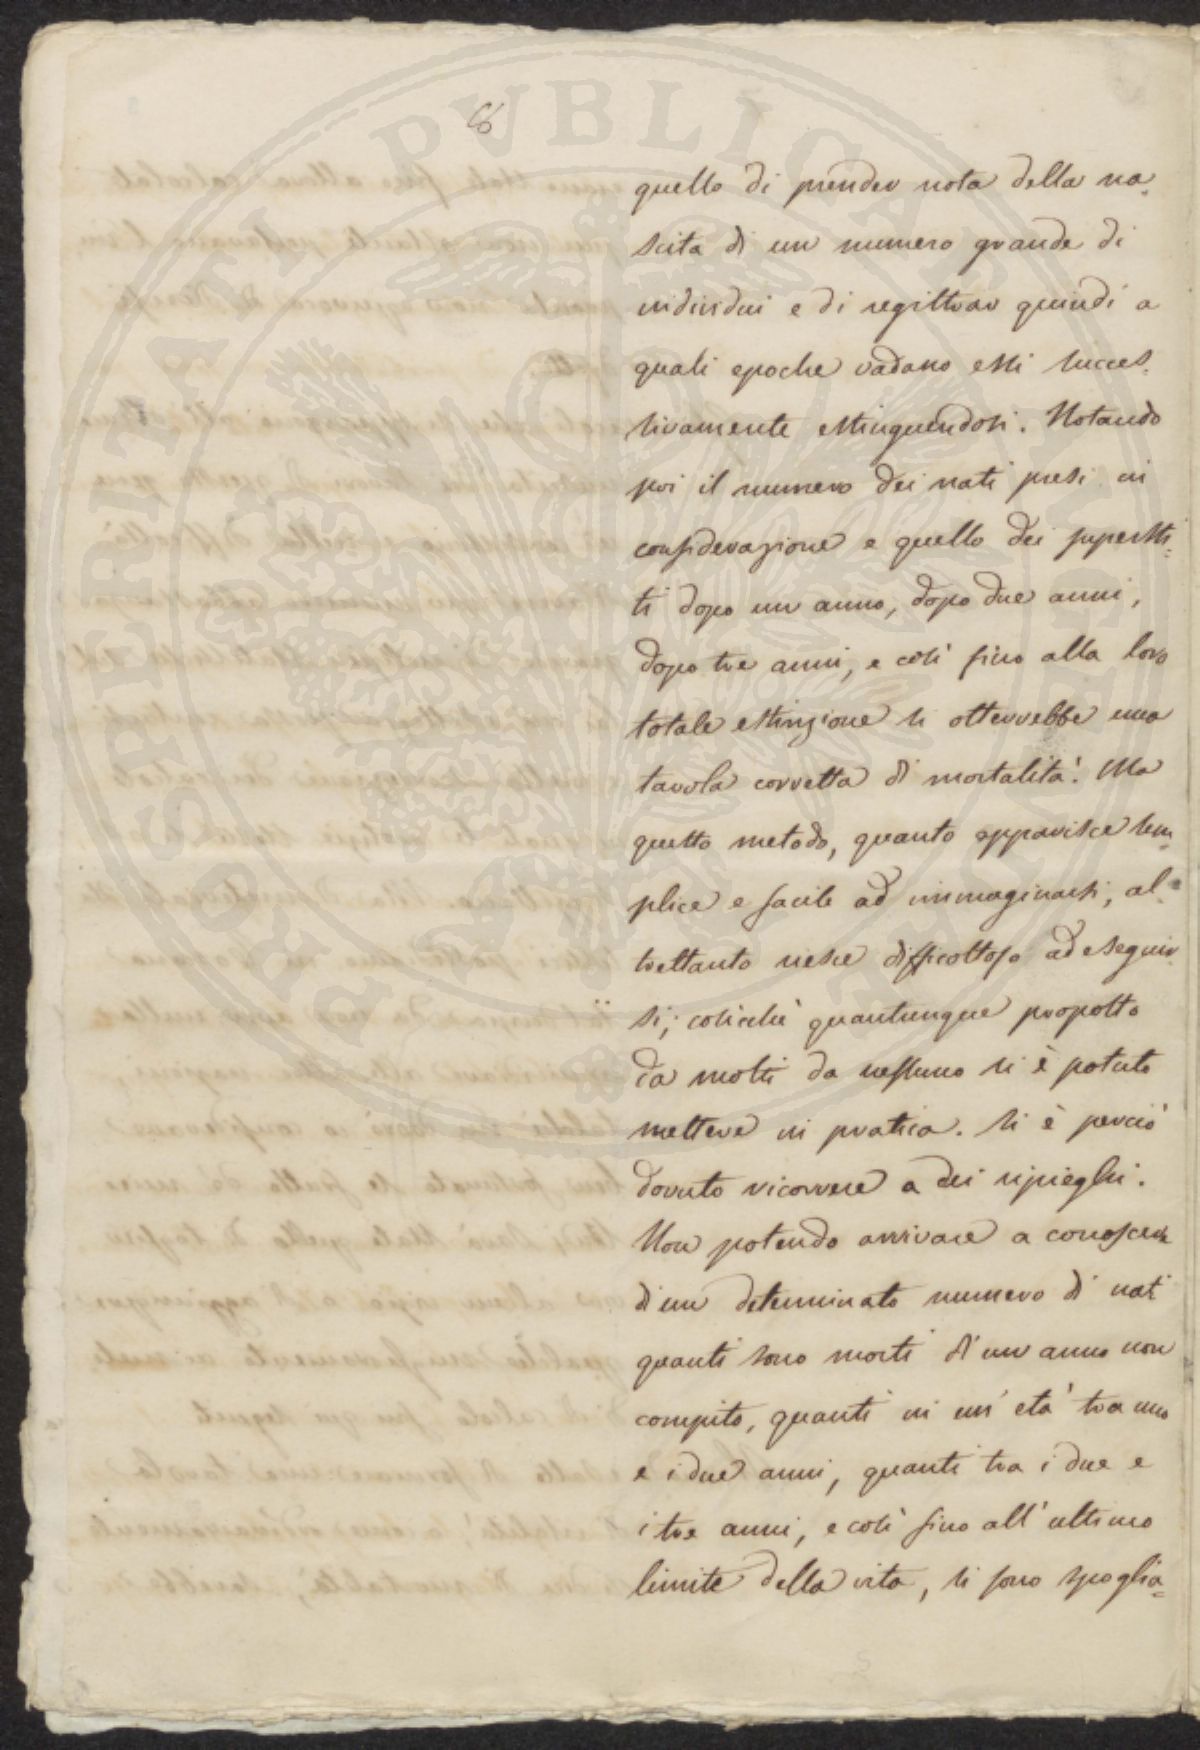 8
quello di prender nota della na-
scita di un numero grande di
individui e di registrar quindi a
quali epoche vadano essi succes-
sivamente estinguendosi. Notando
poi il numero dei nati presi in
considerazione e quello dei supersti-
ti dopo un anno, dopo due anni,
dopo tre anni, e così fino alla loro
totale estinzione si otterrebbe una
tavola corretta di mortalità. Ma
questo metodo, quanto apparisce sem-
plice e facile ad immaginarsi, al-
trettanto riesce difficoltoso ad eseguir-
si; cosicchè quantunque proposto
da molti da nessuno si è potuto
mettere in pratica. Si è perciò
dovuto ricorrere a dei ripieghi.
Non potendo arrivare a conoscere
di un determinato numero di nati
quanti sono morti di un anno non
compito, quanti in un' età tra uno
e i due anni, quanti tra i due e
i tre anni, e così fino all' ultimo
limite della vita, si sono spoglia-
PROSPERITATI PVBLICAE